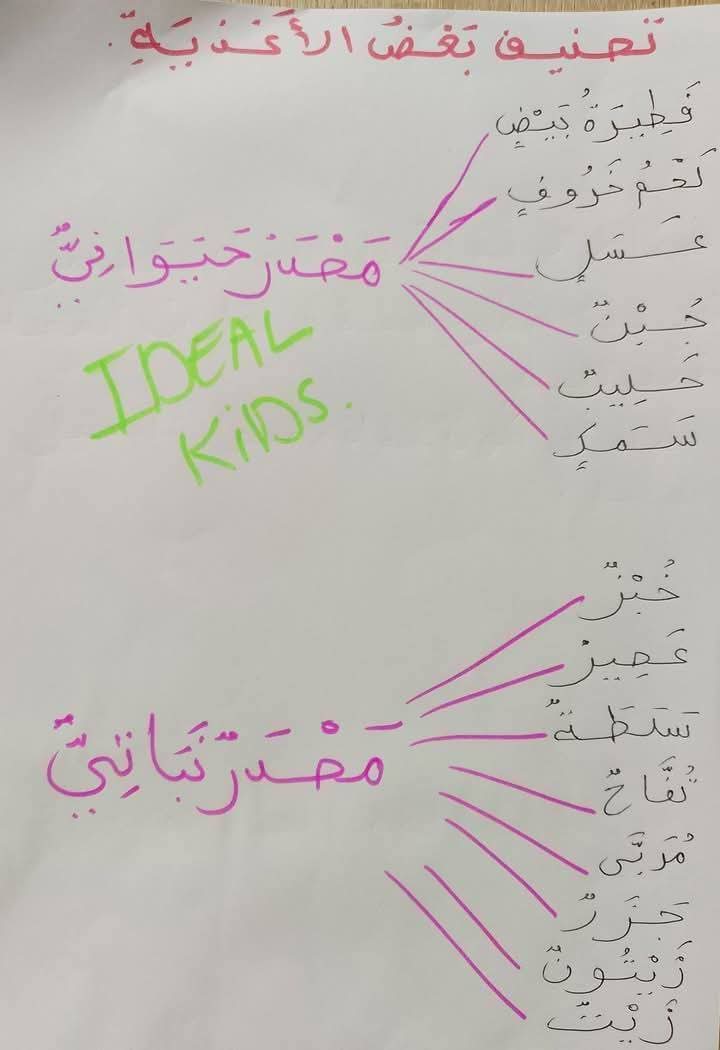 تصنيف بَعْضُ الأَغْذِيَةِ.
فَطِيرَةُ بَيْضٍ
لَحْمُ خَرُوفٍ
عَسَلٍ
مَصْدَرٌ حَيَوَانِيٌّ
جُبْنٌ
حَلِيبٌ
سَمَكٍ
IDEAL
KiDS.
خُبْزٌ
عَصِيرٌ
سَلَطَةٌ
مَصْدَرٌ نَبَاتِيٌّ
تُفَّاحٌ
مُرَبَّى
جَزَرٌ
زَيْتُونٌ
زَيْتٌ